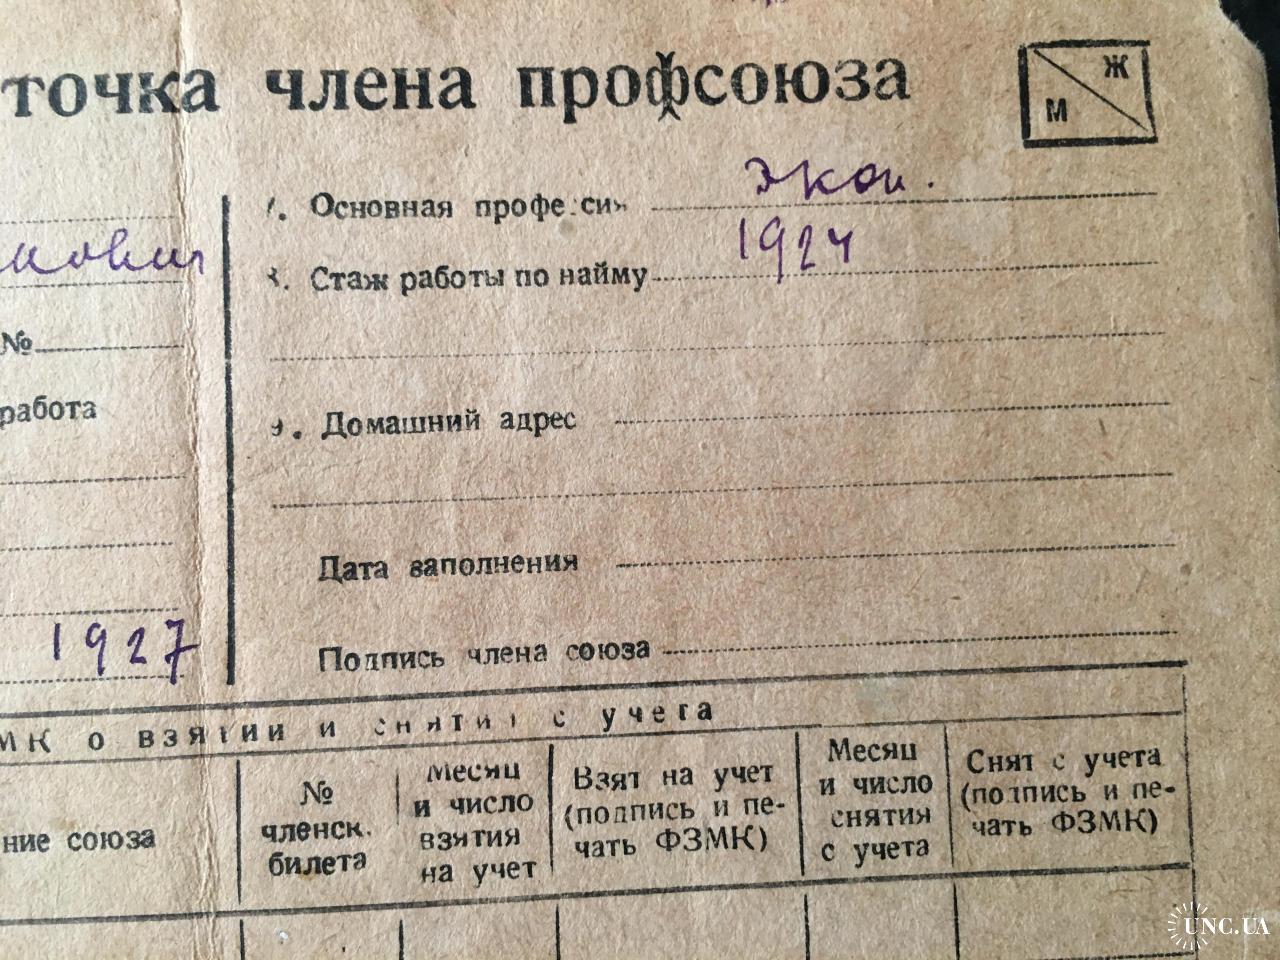 точка члена профсоюза
Ж
М
7. Основная профессия экон.
8. Стаж работы по найму 1924
№
работа
9. Домашний адрес
Дата заполнения
1927
Подпись члена союза
МК о взятии и снятии с учета
ние союза
№ членск. билета
Месяц и число взятия на учет
Взят на учет (подпись и печать ФЗМК)
Месяц и число снятия с учета
Снят с учета (подпись и печать ФЗМК)
UNC.UA